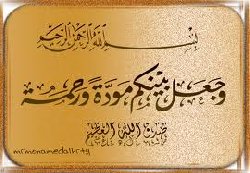 بسم الله الرحمن الرحيم
وجعل بينكم مودة ورحمة
صدق الله العظيم